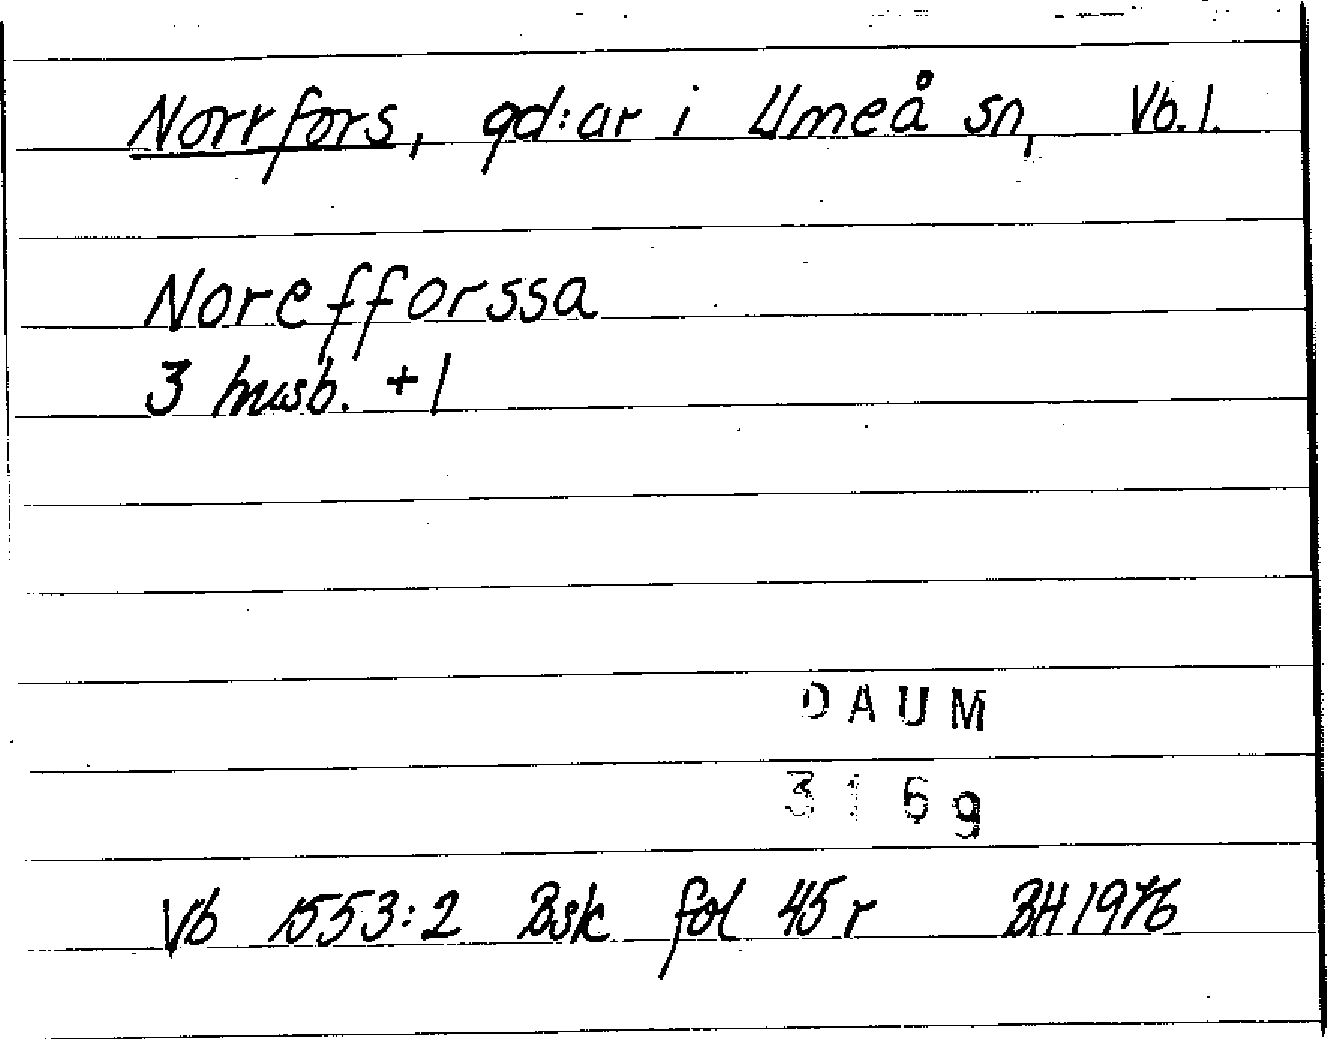 Norrfors, gd:ar i Umeå sn, Vb.l.
Norefforssa
3 husb. +1
DAUM
3169
Vb 1553:2 Bsk fol 45 r BH 1976